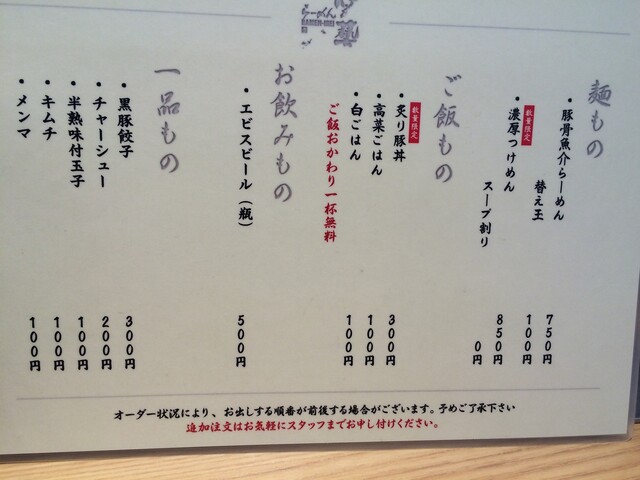 らーめん
麺もの
・豚骨魚介らーめん 750円
替え玉 100円
数量限定
・濃厚つけめん 850円
スープ割り 0円
ご飯もの
数量限定
・炙り豚丼 300円
・高菜ごはん 100円
・白ごはん 100円
ご飯おかわり一杯無料
お飲みもの
・エビスビール（瓶） 500円
一品もの
・黒豚餃子 300円
・チャーシュー 200円
・半熟味付玉子 100円
・キムチ 100円
・メンマ 100円
オーダー状況により、お出しする順番が前後する場合がございます。予めご了承下さい
追加注文はお気軽にスタッフまでお申し付けください。